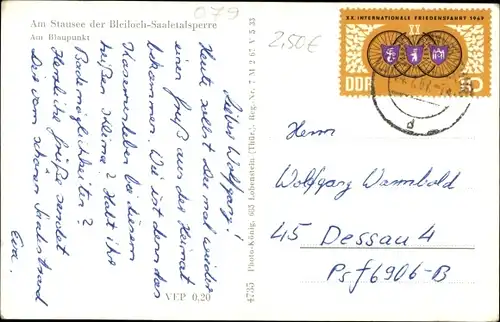 079
Am Stausee der Bleiloch-Saaletalsperre
Am Blaupunkt
2,50€
XX. INTERNATIONALE FRIEDENSFAHRT 1967
XX
DDR
Lieber Wolfgang!
Heute sollst du mal wieder
einen Gruß aus der Heimat
bekommen. Wie ist denn das
bei diesem
heißen Klima? Habt ihr
Bademöglichkeiten?
Herzliche Grüße sendet
Dir vom schönen Saalestrand
Eva.
VEP 0,20
4735 Photo-König, 685 Lobenstein (Thür.) Reg.-Nr. 7 M 2 67 N 5 33
Herrn
Wolfgang Warmbold
45 Dessau 4
Psf 6906-B